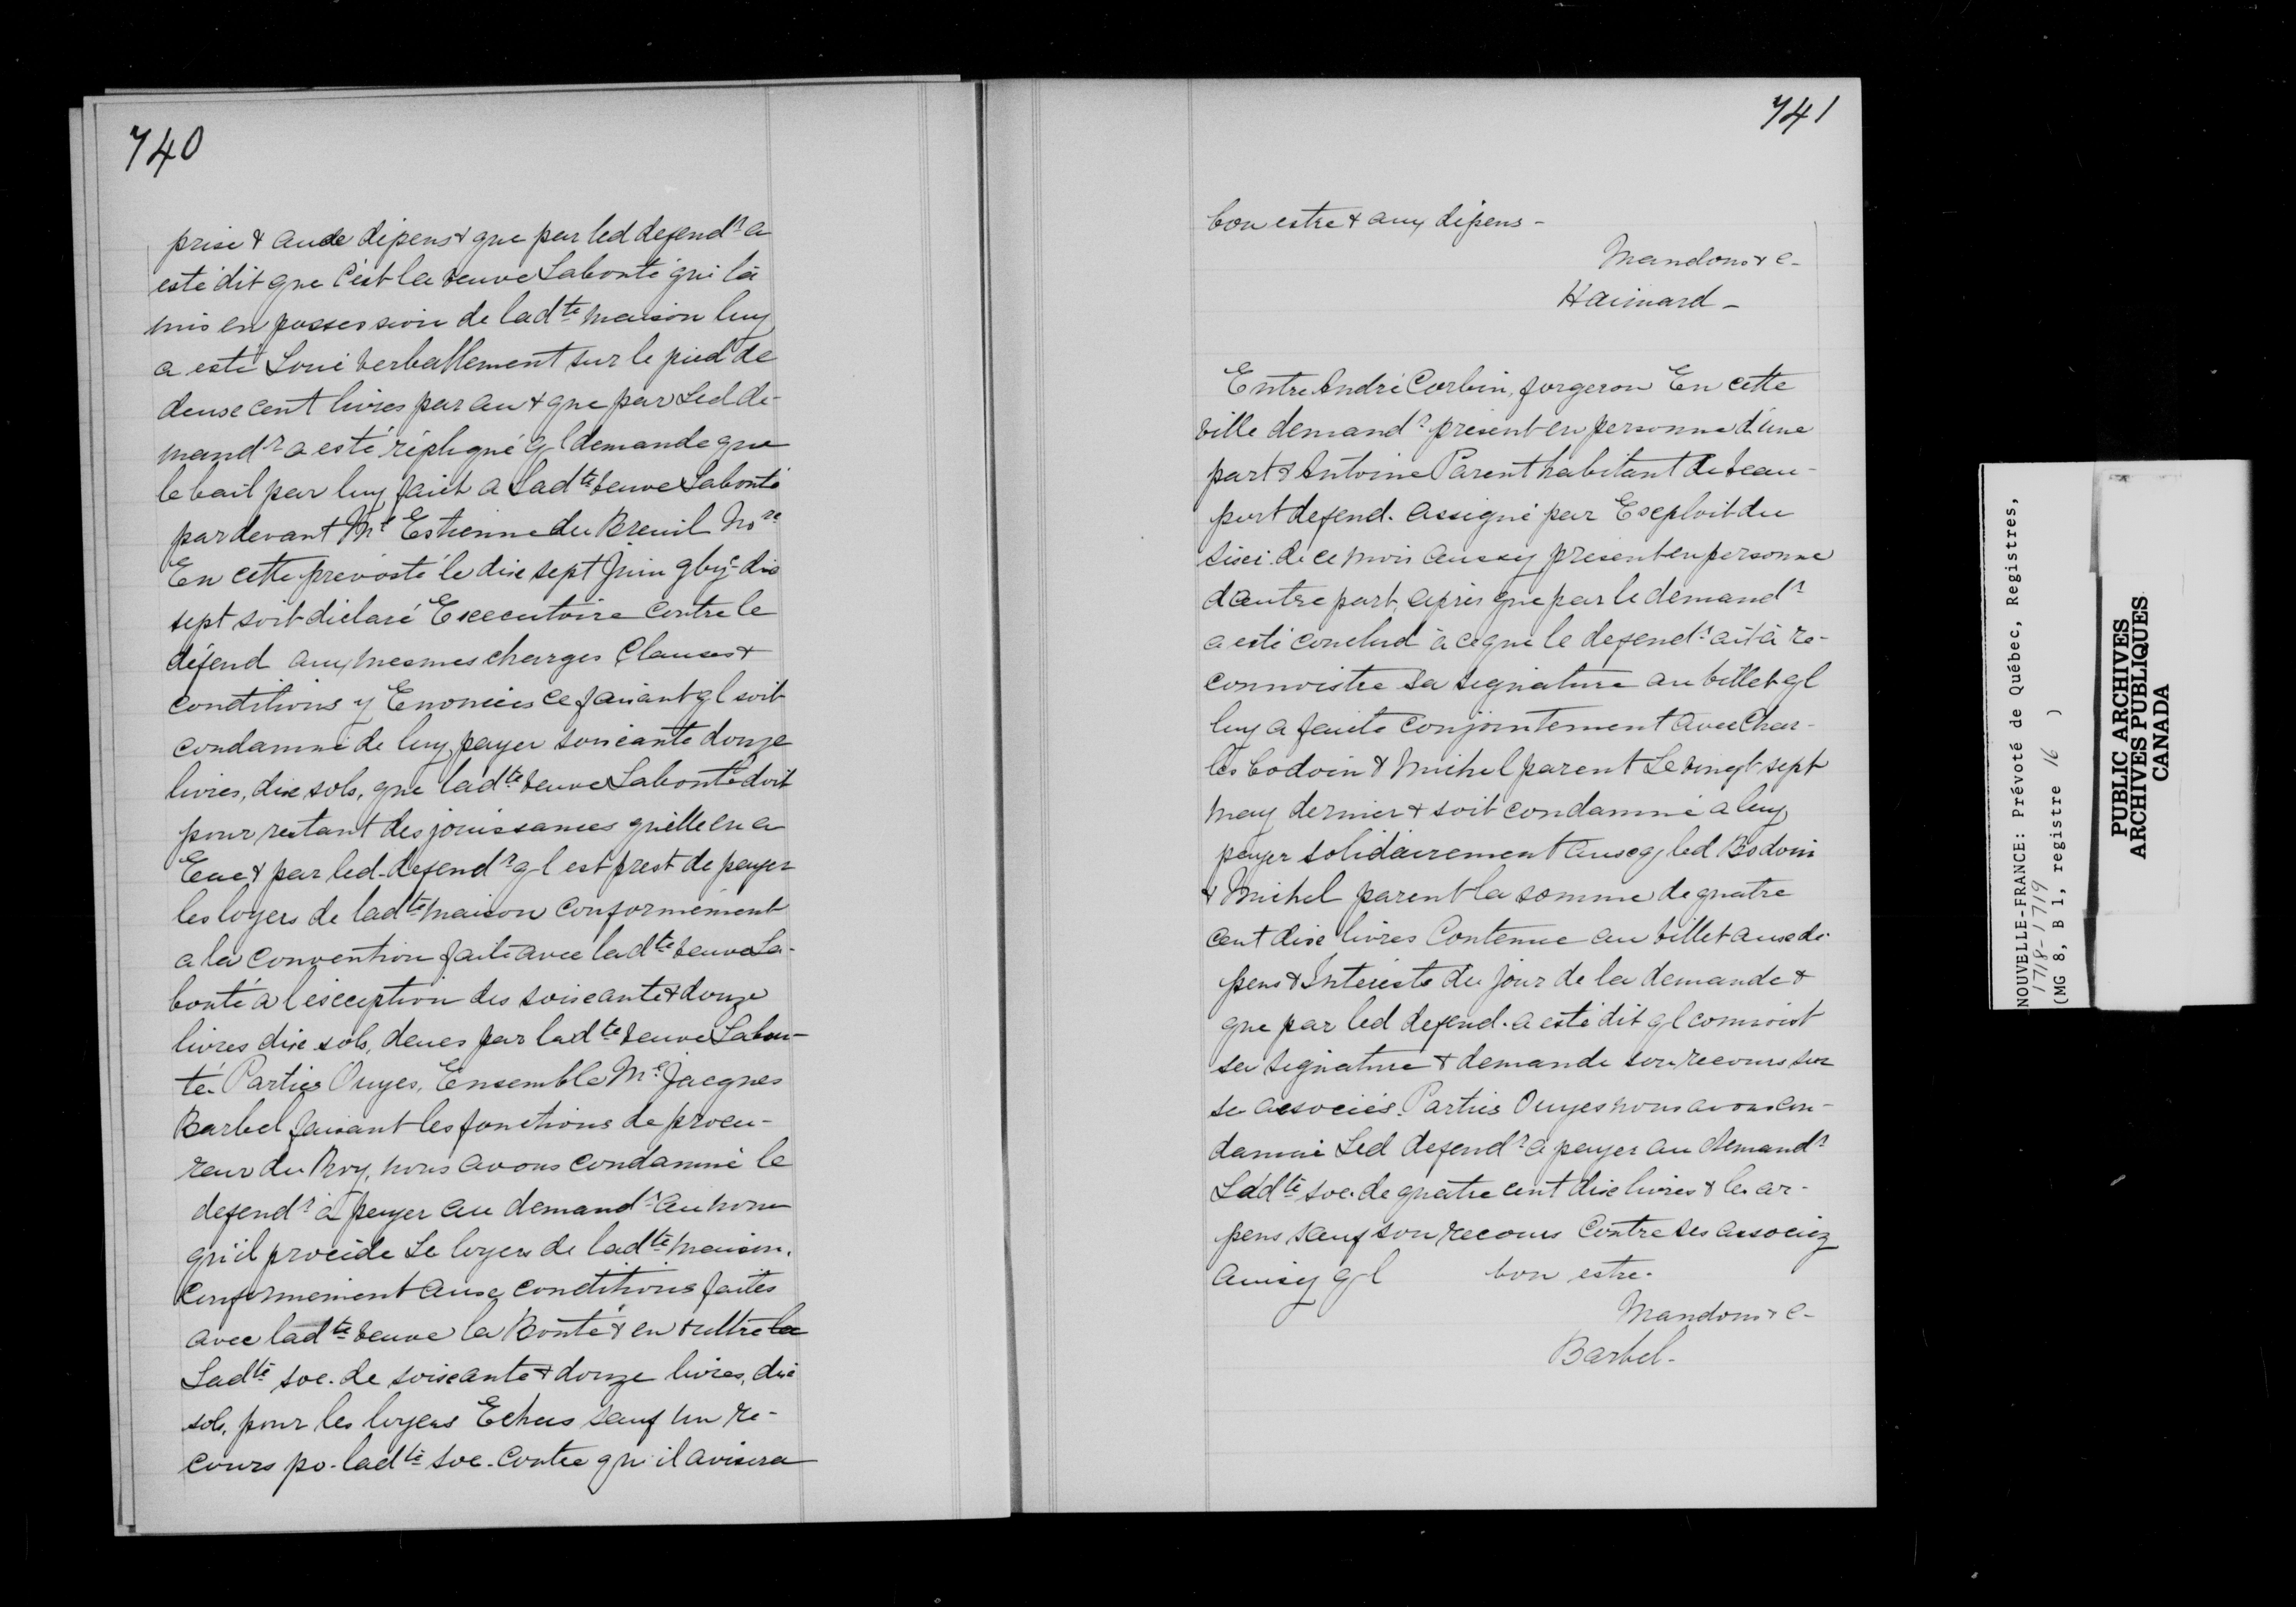 740
prise & aux depens & que par led defendr a
esté dit que c'est la veuve Labonté qui l'a
mis en possession de ladte maison luy
a esté Loué verballement sur le pied de
deux cent livres par an & que par Led de-
mandr a esté répliqué ql demande que
le bail par luy faict a Ladte veuve Labonté
pardevant Me Estienne du Breuil Nore
En cette prevosté le dix sept Juin gbijc dix
sept soit déclaré Executoire contre le
défend aux mesmes charges Clauses &
conditions y Enoncées ce faisant ql soit
condamné de luy payer soixante douze
livres, dix sols, que ladte veuve Labonté doit
pour restant des jouissances qu'elle en a
Eue & par led. defendr ql est prest de payer
les loyers de ladte maison conformément
a la convention faite avec ladte veuve La-
bonté a l'exception des soixante & douze
livres dix sols, deues par ladte veuve Labon-
té. Parties Ouyes, Ensemble Me Jacques
Barbel faisant les fonctions de procu-
reur du Roy, nous avons condamné le
defendr à payer au demandr au nom
qu'il procède Le loyers de ladte maison,
conformément aux conditions faites
avec ladte veuve la Bonté & en outre la
Ladte soe. de soixante & douze livres, dix
sols, pour les loyers Echus sauf son re-
cours po. ladte soe. contre qui il avisera
741
bon estre & aux dépens -
Mandons & c-
Haimard -
Entre André Corbin, forgeron En cette
ville demandr présent en personne d'une
part & Antoine Parent habitant de beau-
port defend. assigné par Exploit du
sixi. de ce mois aussy present en personne
d'autre part, après que par le demandr
a esté conclud à ce que le defendr ait à re-
connoistre sa signature au billet ql
luy a faite conjointement avec Char-
les bodoin & Michel parent Le vingt sept
may dernier & soit condamné a luy
payer solidairement avec led Bodoin
& Michel parent la somme de quatre
cent dix livres Contenue au billet aux dé-
pens & Interests du jour de la demande &
que par led defend. a esté dit ql connoist
sa signature & demande son recours sur
se associés. Parties Ouyes nous avons con-
damné Led defendr à payer au demandr
Ladte soe. de quatre cent dix livres & les ar-
pens sauf son recours Contre ses associez
ainsy ql bon estre.
Mandons & c-
Barbel -
NOUVELLE-FRANCE: Prévoté de Québec, Registres,
1718-1719
(MG 8, B 1, registre 16 )
PUBLIC ARCHIVES
ARCHIVES PUBLIQUES
CANADA